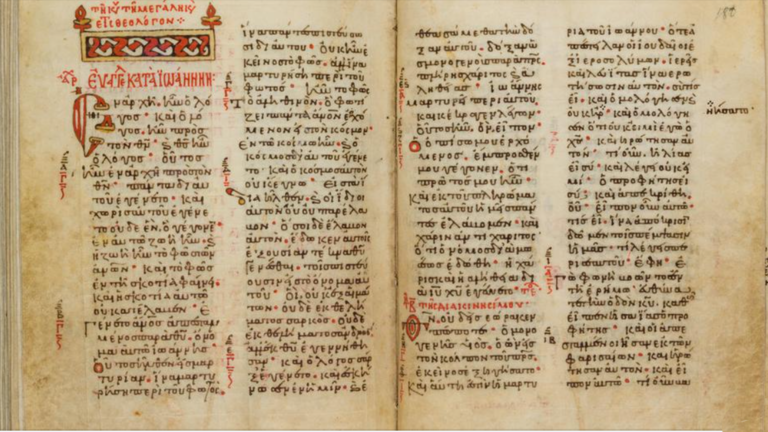 τῇ κυ τῇ μεγάλη
θεολόγον
ευαγγ κατὰ ἰωάννην
Ἐν ἀρχῆ ἦν ὁ λό
γος· καὶ ὁ λό
γος ἦν πρὸς
τὸν θν· καὶ θς ἦν
ὁ λόγος· οὗτος
ἦν ἐν ἀρχῆ πρὸς τὸν
θν· πάντα δι αυ
του ἐγένετο· καὶ
χωρὶς αὐτου ἐγένε
το οὐδὲ ἕν. ὃ γέγονεν
ἐν αὐτῶ ζωὴ ἦν. καὶ
ἡ ζωὴ ἦν τὸ φῶς τῶν
ἀνων· καὶ τὸ φῶς
ἐν τῆ σκοτία φαίνει
καὶ ἡ σκοτία αὐτὸ
οὐ κατέλαβεν·
Ἐγένετο ἄνος ἀπεσταλ
μένος παρὰ θυ· ὄνο
μα αὐτῶ ἰωάννης
οὗτος ἦλθεν εἰς μαρ
τυρίαν· ἵνα μαρτυ
ρήση περὶ τοῦ φωτός.
ἵνα πάντες πιστεύσω
σι δι αὐτοῦ· οὐκ ἦν ἐ
κεῖνος τὸ φῶς· ἀλλ ἵνα
μαρτυρήση περὶ τοῦ
φωτός· ἦν τὸ φῶς
τὸ ἀληθινόν. ὃ φωτί
ζει πάντα ἄνον ἐρχό
μενον εἰς τὸν κόσμον·
ἐν τῶ κόσμω ἦν. καὶ ὁ
κόσμος δι αὐτοῦ ἐγένε
το· καὶ ὁ κόσμος αὐτὸν
οὐκ ἔγνω· εἰς τὰ ἴ
δια ἦλθεν. καὶ οἱ ἴδιοι
αὐτὸν οὐ παρέλα
βον· ὅσοι δὲ ἔλαβον
αὐτόν. ἔδωκεν αὐτοῖς
ἐξουσίαν τέκνα θυ
γενέσθαι. τοῖς πιστεύ
ουσιν εἰς τὸ ὄνομα αὐ
τοῦ· οἳ οὐκ ἐξ αἱμά
των· οὐδὲ ἐκ θελή
ματος σαρκός· οὐδὲ
ἐκ θελήματος ἀνδρός.
ἀλλ ἐκ θυ ἐγεννήθη
σαν· καὶ ὁ λόγος σὰρξ
ἐγένετο· καὶ ἐσκή
νωσεν ἐν ἡμῖν· καὶ ἐ
θεασάμεθα τὴν δό
ξαν αὐτοῦ· δόξαν ὡ
ς μονογενοῦς παρὰ πρς
πλήρης χάριτος καὶ ἀ
ληθείας· ἰωάννης
μαρτυρεῖ περὶ αὐτοῦ.
καὶ κέκραγε λέγων·
οὗτος ἦν. ὃν εἶπον·
ὁ ὀπίσω μου ἐρχό
μενος. ἔμπροσθέν
μου γέγονεν. ὅτι
πρῶτός μου ἦν·
καὶ ἐκ τοῦ πληρώμα
τος αὐτοῦ ἡμεῖς πάν
τες ἐλάβομεν· καὶ
χάριν ἀντὶ χάριτος
ὅτι ὁ νόμος διὰ μω
σέως ἐδόθη· ἡ χά
ρις καὶ ἡ ἀλήθεια δι
ὰ ιυ χυ ἐγένετο·
τῆς διακινησίμου
θν οὐδεὶς ἑώρακεν
πώποτε· ὁ μονο
γενὴς υἱός. ὁ ὢν εἰς
τὸν κόλπον τοῦ πρς.
ἐκεῖνος ἐξηγήσατο·
καὶ αὕτη ἐστὶν ἡ μαρτυ
ρία τοῦ ἰωάννου· ὅτε ἀ
πέστειλαν οἱ ἰουδαῖοι ἐ
ξ ἱεροσολύμων· ἱερεῖς
καὶ λευίτας ἵνα ἐρω
τήσωσιν αὐτόν. σὺ τίς
εἶ· καὶ ὡμολόγησεν καὶ
οὐκ καὶ ὡμολόγη
σεν ὅτι οὐκ εἰμὶ ἐγὼ ὁ
χς· καὶ ἠρώτησαν αὐ
τόν· τί οὖν. ἠλίας
εἶ σύ· καὶ λέγει οὐκ εἰ
μί· ὁ προφήτης εἶ
σύ· καὶ ἀπεκρίθη.
οὔ· εἶπον οὖν αὐτῶ·
τίς εἶ. ἵνα ἀπόκρισιν
δῶμεν τοῖς πέμψασιν
ἡμᾶς· τί λέγεις πε
ρὶ σεαυτοῦ· ἔφη· ἐ
γὼ φωνὴ βοῶντος ἐν
τῆ ἐρήμω· εὐθύνα
τε τὴν ὁδὸν κυ. καθὼς
εἶπεν ἡσαΐας ὁ προ
φήτης· καὶ οἱ ἀπε
σταλμένοι ἦσαν ἐκ τῶν
φαρισαίων· καὶ ἠρώ
τησαν αὐτόν· καὶ εἶ
πον αὐτῶ· τί οὖν βα
ηρνήσατο·